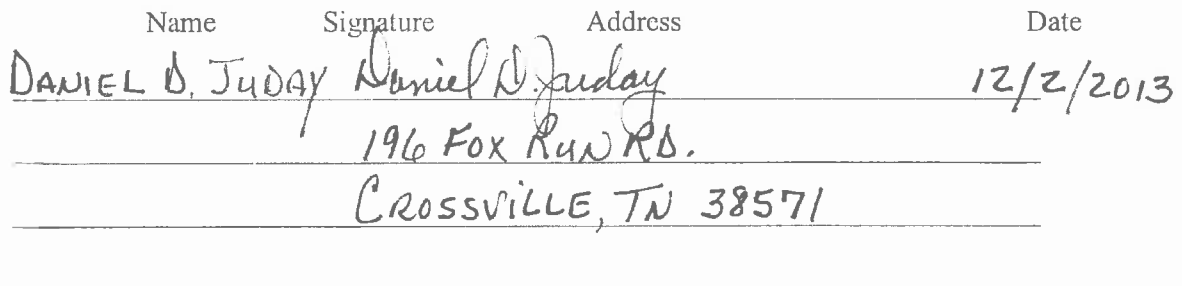 Name Signature Address Date
DANIEL D. JUDAY Daniel D. Juday 12/2/2013
196 FOX RUN RD.
CROSSVILLE, TN 38571